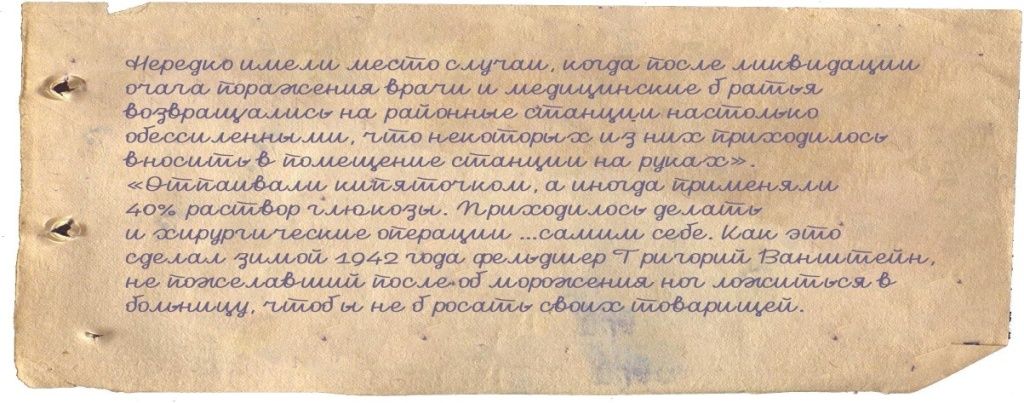 Нередко имели место случаи, когда после ликвидации
очага поражения врачи и медицинские братья
возвращались на районные станции настолько
обессиленными, что некоторых из них приходилось
вносить в помещение станции на руках».
«Отпаивали кипяточком, а иногда применяли
40% раствор глюкозы. Приходилось делать
и хирургические операции ...самим себе. Как это
сделал зимой 1942 года фельдшер Григорий Ванштейн,
не пожелавший после обморожения ног ложиться в
больницу, чтобы не бросать своих товарищей.